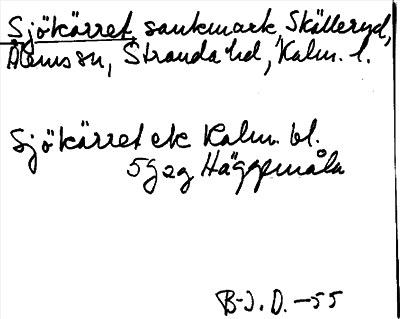 Sjökärret, sankmark, Skälleryd,
Ålems sn, Stranda hd, Kalm. l.
Sjökärret ek Kalm. bl.
5G eg Häggemåla
B-J. D. -55